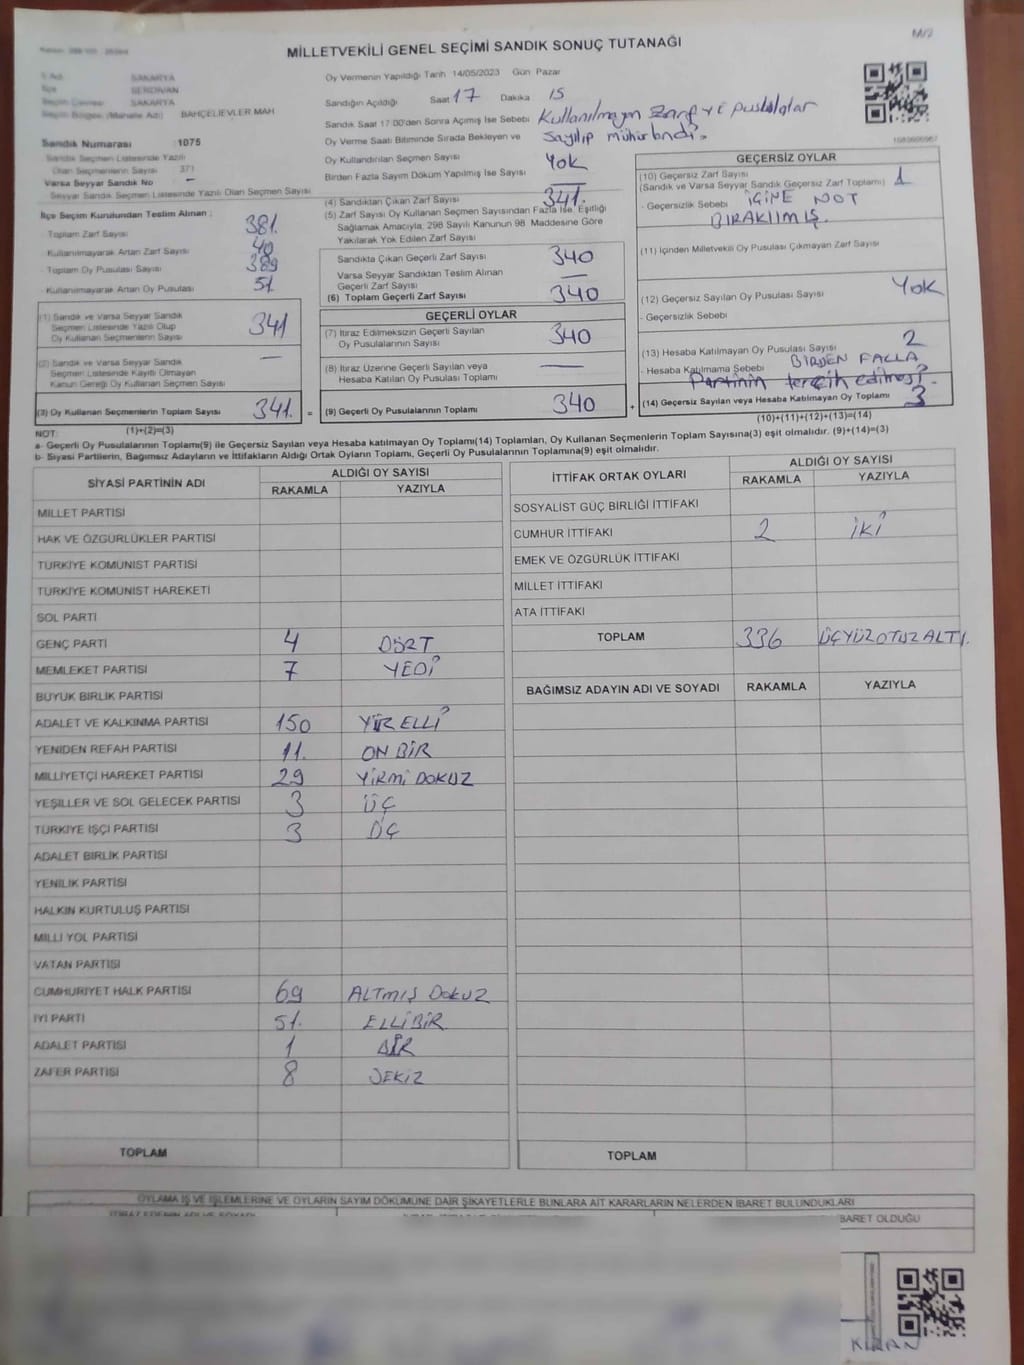 MİLLETVEKİLİ GENEL SEÇİMİ SANDIK SONUÇ TUTANAĞI
M/2
SAKARYA
SERDİVAN
SAKARYA
BAHÇELİEVLER MAH
Sandık Numarası : 1075
Sandık Seçmen Listesinde Yazılı
Olan Seçmenlerin Sayısı 371
Varsa Seyyar Sandık No –
Seyyar Sandık Seçmen Listesinde Yazılı Olan Seçmen Sayısı
Oy Vermenin Yapıldığı Tarih 14/05/2023 Gün Pazar
Sandığın Açıldığı Saat 17 Dakika 15
Sandık Saat 17:00'den Sonra Açılmış İse Sebebi Kullanılmayan zarf ve pusulalar
Oy Verme Saati Bitiminde Sırada Bekleyen ve sayılıp mühürlendi.
Oy Kullandırılan Seçmen Sayısı Yok
Birden Fazla Sayım Döküm Yapılmış İse Sayısı —
İlçe Seçim Kurulundan Teslim Alınan :
- Toplam Zarf Sayısı 381.
- Kullanılmayarak Artan Zarf Sayısı 40
- Toplam Oy Pusulası Sayısı 389
- Kullanılmayarak Artan Oy Pusulası 51.
(1) Sandık ve Varsa Seyyar Sandık
Seçmen Listesinde Yazılı Olup
Oy Kullanan Seçmenlerin Sayısı 341
(2) Sandık ve Varsa Seyyar Sandık
Seçmen Listesinde Kayıtlı Olmayan
Kanun Gereği Oy Kullanan Seçmen Sayısı —
(3) Oy Kullanan Seçmenlerin Toplam Sayısı 341. =
(1)+(2)=(3)
(4) Sandıktan Çıkan Zarf Sayısı 341.
(5) Zarf Sayısı Oy Kullanan Seçmen Sayısından Fazla İse, Eşitliği
Sağlamak Amacıyla, 298 Sayılı Kanunun 98. Maddesine Göre
Yakılarak Yok Edilen Zarf Sayısı
Sandıkta Çıkan Geçerli Zarf Sayısı 340
Varsa Seyyar Sandıktan Teslim Alınan
Geçerli Zarf Sayısı —
(6) Toplam Geçerli Zarf Sayısı 340
GEÇERLİ OYLAR
(7) İtiraz Edilmeksizin Geçerli Sayılan
Oy Pusulalarının Sayısı 340
(8) İtiraz Üzerine Geçerli Sayılan veya
Hesaba Katılan Oy Pusulası Toplamı —
(9) Geçerli Oy Pusulalarının Toplamı 340 +
GEÇERSİZ OYLAR
(10) Geçersiz Zarf Sayısı
(Sandık ve Varsa Seyyar Sandık Geçersiz Zarf Toplamı) 1
- Geçersizlik Sebebi İÇİNE NOT
BIRAKILMIŞ.
(11) İçinden Milletvekili Oy Pusulası Çıkmayan Zarf Sayısı
(12) Geçersiz Sayılan Oy Pusulası Sayısı Yok
- Geçersizlik Sebebi
(13) Hesaba Katılmayan Oy Pusulası Sayısı 2
- Hesaba Katılmama Sebebi BİRDEN FAZLA
Partinin tercih edilmesi.
(14) Geçersiz Sayılan veya Hesaba Katılmayan Oy Toplamı 3
(10)+(11)+(12)+(13)=(14)
NOT:
a- Geçerli Oy Pusulalarının Toplamı(9) ile Geçersiz Sayılan veya Hesaba katılmayan Oy Toplamı(14) Toplamları, Oy Kullanan Seçmenlerin Toplam Sayısına(3) eşit olmalıdır. (9)+(14)=(3)
b- Siyasi Partilerin, Bağımsız Adayların ve İttifakların Aldığı Ortak Oyların Toplamı, Geçerli Oy Pusulalarının Toplamına(9) eşit olmalıdır.
SİYASİ PARTİNİN ADI ALDIĞI OY SAYISI
RAKAMLA YAZIYLA
MİLLET PARTİSİ
HAK VE ÖZGÜRLÜKLER PARTİSİ
TÜRKİYE KOMÜNİST PARTİSİ
TÜRKİYE KOMÜNİST HAREKETİ
SOL PARTİ
GENÇ PARTİ 4 DÖRT
MEMLEKET PARTİSİ 7 YEDİ
BÜYÜK BİRLİK PARTİSİ
ADALET VE KALKINMA PARTİSİ 150 YÜZELLİ
YENİDEN REFAH PARTİSİ 11. ON BİR
MİLLİYETÇİ HAREKET PARTİSİ 29 YİRMİ DOKUZ
YEŞİLLER VE SOL GELECEK PARTİSİ 3 ÜÇ
TÜRKİYE İŞÇİ PARTİSİ 3 ÜÇ
ADALET BİRLİK PARTİSİ
YENİLİK PARTİSİ
HALKIN KURTULUŞ PARTİSİ
MİLLİ YOL PARTİSİ
VATAN PARTİSİ
CUMHURİYET HALK PARTİSİ 69 ALTMIŞ DOKUZ
İYİ PARTİ 51. ELLİBİR
ADALET PARTİSİ 1 BİR
ZAFER PARTİSİ 8 SEKİZ
TOPLAM
İTTİFAK ORTAK OYLARI ALDIĞI OY SAYISI
RAKAMLA YAZIYLA
SOSYALİST GÜÇ BİRLİĞİ İTTİFAKI
CUMHUR İTTİFAKI 2 İKİ
EMEK VE ÖZGÜRLÜK İTTİFAKI
MİLLET İTTİFAKI
ATA İTTİFAKI
TOPLAM 336 ÜÇYÜZOTUZALTI.
BAĞIMSIZ ADAYIN ADI VE SOYADI RAKAMLA YAZIYLA
TOPLAM
OYLAMA İŞ VE İŞLEMLERİNE VE OYLARIN SAYIM DÖKÜMÜNE DAİR ŞİKAYETLERLE BUNLARA AİT KARARLARIN NELERDEN İBARET BULUNDUKLARI
İBARET OLDUĞU